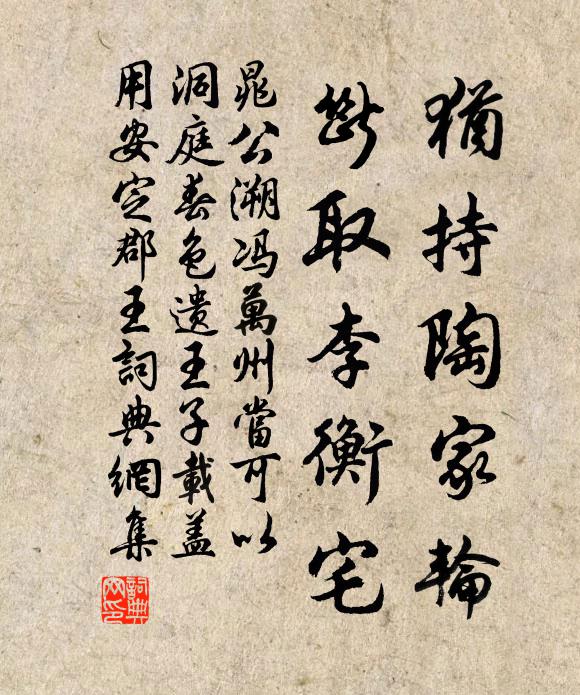 猶持陶家輪
斷取李衡宅
晁公溯馮萬州當可以
洞庭春色遺王子載盖
用安定郡王詞典網集
詞典網印